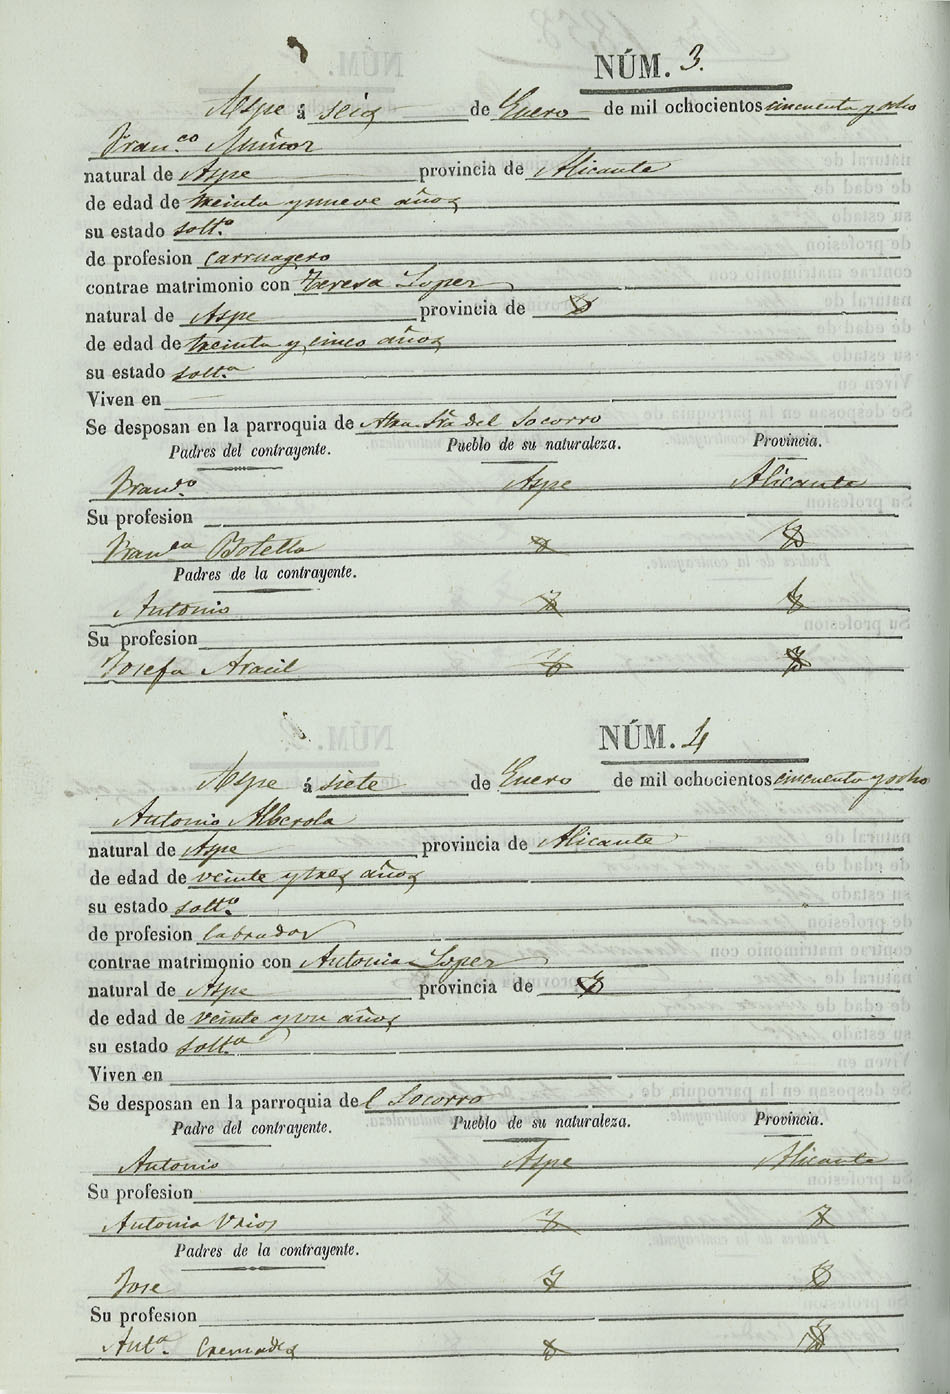 NÚM. 3.
Aspe á seis de Enero de mil ochocientos cincuenta y ocho
Fran.co Muñoz
natural de Aspe provincia de Alicante
de edad de treinta y nueve años
su estado solt.o
de profesion carruagero
contrae matrimonio con Teresa Lopez
natural de Aspe provincia de
de edad de treinta y cinco años
su estado solt.a
Viven en
Se desposan en la parroquia de Ntra Sra del Socorro
Padres del contrayente. Pueblo de su naturaleza. Provincia.
Fran.co Aspe Alicante
Su profesion
Fran.ca Botella
Padres de la contrayente.
Antonio
Su profesion
Josefa Aracil
NÚM. 4
Aspe á siete de Enero de mil ochocientos cincuenta y ocho
Antonio Alberola
natural de Aspe provincia de Alicante
de edad de veinte y tres años
su estado solt.o
de profesion labrador
contrae matrimonio con Antonia Lopez
natural de Aspe provincia de
de edad de veinte y un años
su estado solt.a
Viven en
Se desposan en la parroquia del Socorro
Padre del contrayente. Pueblo de su naturaleza. Provincia.
Antonio Aspe Alicante
Su profesion
Antonia Urios
Padres de la contrayente.
Jose
Su profesion
Ant.a Cremades